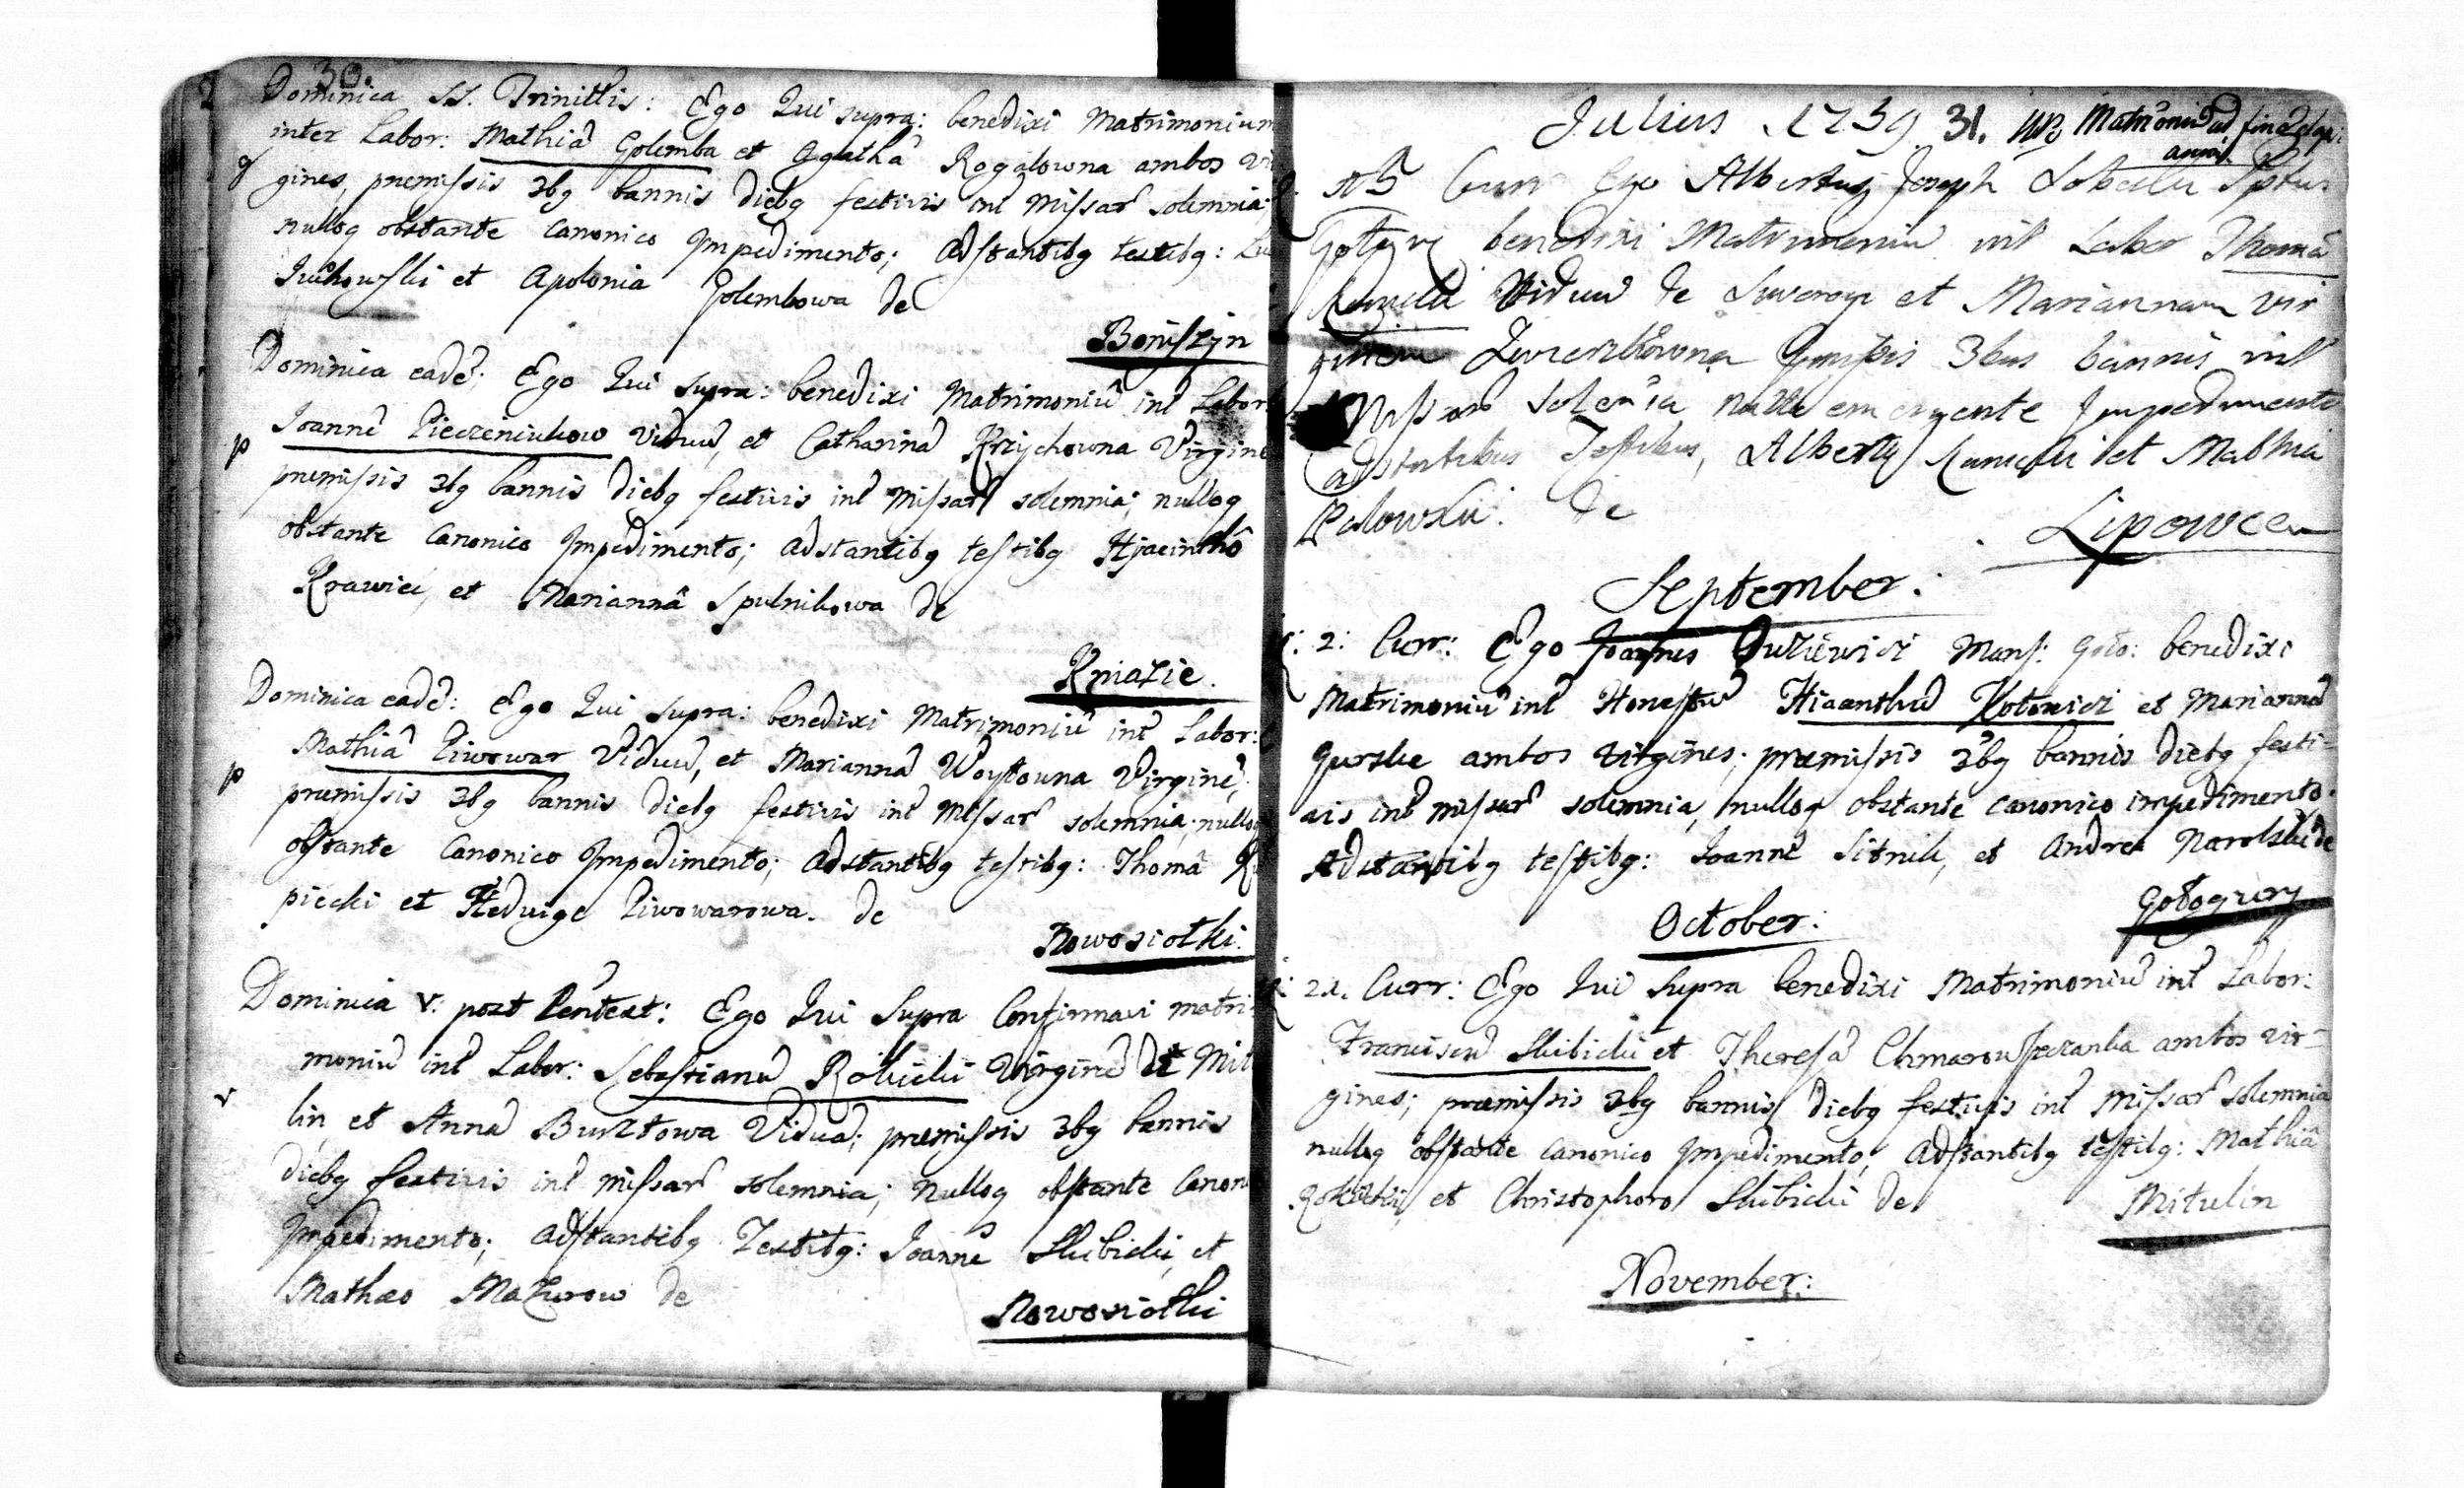 30.
Dominica SS. Trinittis: Ego Qui supra: benedixi Matrimonium
inter Labor: Mathiã Golemba et Agathã Rogalowna ambos vir
gines, præmissis 3bq bannis diebq festivis int Missar solemnia;
nulloq obstante canonico Impedimento; Adstantibq testibq:
Juchowski et Apolonia Golembowa de
Boniszyn
Dominica eadẽ; Ego Qui supra: benedixi Matrimoniũ int Labor
Joannẽ Pieczeniukow viduũ, et Catharinã Krzychowna Virginẽ
p
præmissis 3bq bannis diebq festivis int Missar solemnia; nulloq
obstante Canonico Impedimento; Adstantibq testibq Hyacinthô
Krawiec, et Mariannâ Spulnikowa de
Kniazie.
Dominica eadẽ: Ego Qui supra: benedixi Matrimoniũ int Labor:
Mathiã Piwowar Viduũ, et Mariannã Woytowna Virginẽ;
p
præmissis 3bq bannis diebq festivis int Missar solemnia; nulloq
obstante Canonico Impedimento; Adstantibq testibq: Thomâ
piecki et Hedwige Piwowarowa. de
Nowosiołki.
Dominica V: post Pentext: Ego Qui Supra Confirmavi matri-
moniũ int Labor: Sebastianũ Rokicki Virginẽ de Mit
v
lin et Annã Burztowa Viduã; præmissis 3bq bannis
diebq festivis int missar solemnia; nulloq obstante Canon
Impedimento; Adstantibq Testibq: Joannê Skibicki, et
Mathæo Mazurow de
Nowosiołki
Julius 1739. 31. NB Matrimoniũ ad finẽ
anni
Curr Ego Albertus Joseph
benedixi Matrimoniũ int Labor Thomã
Viduũ de et Mariannam vir
ginem 3bus bannis int
Missar Solemnia nullo emergente Impedimento
adstantibus Testibus, Alberto et Mathia
de
Lipowce
September:
2: Curr: Ego Joannes Guziewicz Mans: Goło: benedixi
Matrimoniũ int Honestũ Hiacinthũ Kotowicz et Mariannã
Gurske ambos virgines; præmissis 3bq bannis diebq festi-
vis int missar solemnia, nulloq obstante canonico impedimento.
Adstantibq testibq: Joannê Sitnik, et Andrea Narolski de
Gołogury
October:
21. Curr: Ego Qui Supra benedixi Matrimoniũ int Labor:
Franciscũ Skibicki et Theresã Chmarowszczanka ambos vir-
gines; præmissis 3bq bannis diebq festivis int Missar solemnia
nulloq obstante canonico Impedimento, Adstantibq testibq: Mathiâ
Rokicki, et Christophoro Skibicki de
Mitulin
November: